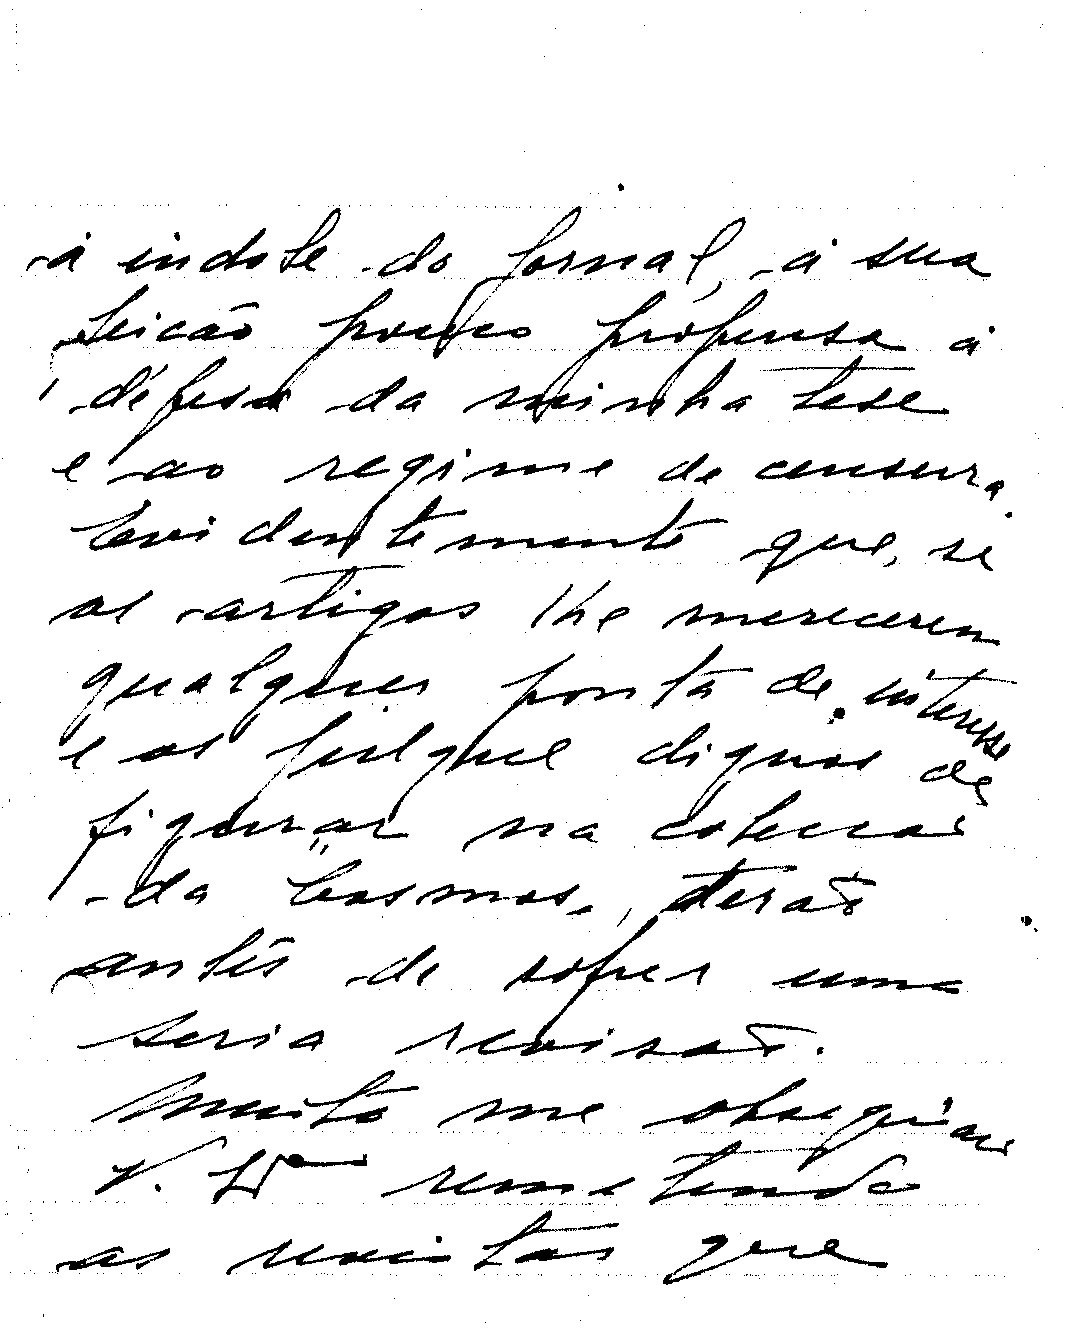 á indole do jornal, á sua
feicão pouco propensa á
défesa da minha tese
e ao regime de censura.
Evidentemente que, se
os artigos lhe merecerem
qualquer ponta de interesse
e os julgue dignos de
figurar na colecção
da Cosmos, terão
antes de sofrer uma
seria revisão.
Muito me obsequiará
V. Exª remetendo
as revistas que